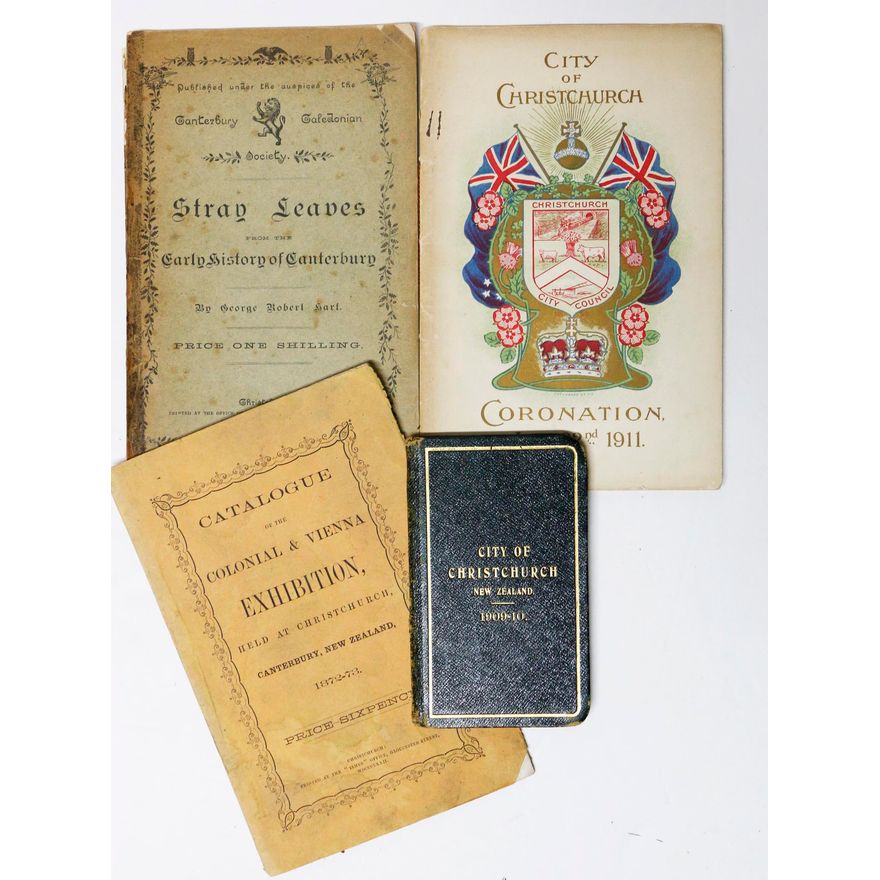 Published under the auspices of the
Canterbury Caledonian
Society.
Stray Leaves
FROM THE
Early History of Canterbury
By George Robert Hart.
PRICE ONE SHILLING.
PRINTED AT THE OFFICE
CITY
OF
CHRISTCHURCH
CHRISTCHURCH
CITY COUNCIL
CORONATION,
nd 1911.
CATALOGUE
OF THE
COLONIAL & VIENNA
EXHIBITION,
HELD AT CHRISTCHURCH,
CANTERBURY, NEW ZEALAND,
1872-73.
PRICE SIXPENCE
CHRISTCHURCH:
PRINTED AT THE "TIMES" OFFICE, GLOUCESTER STREET,
MDCCCLXXII.
CITY OF
CHRISTCHURCH
NEW ZEALAND.
1909-10.